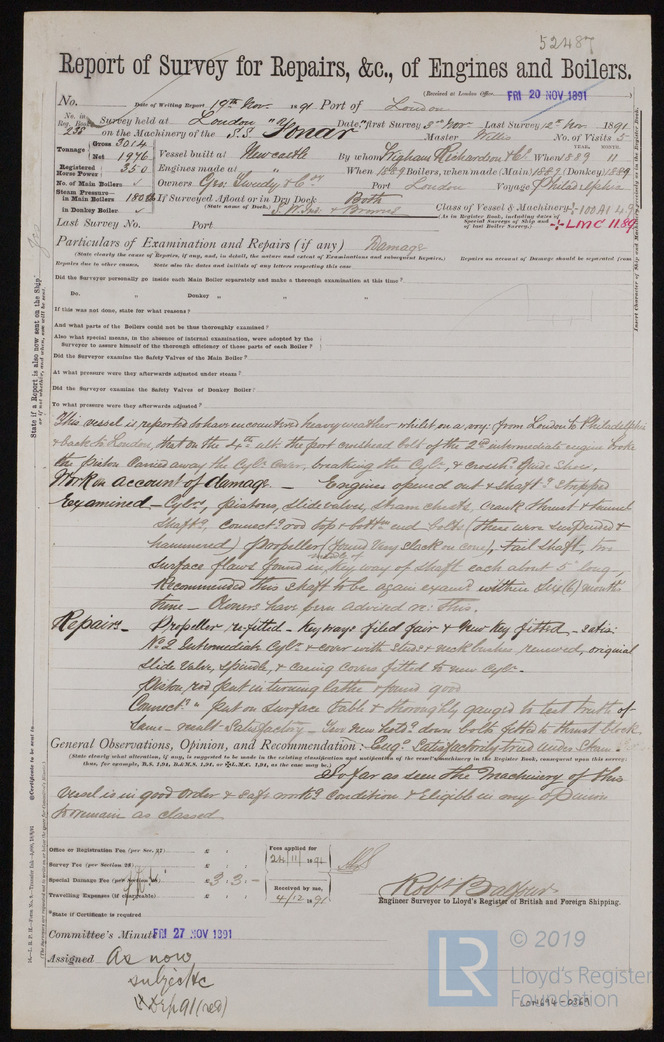 52487
Report of Survey for Repairs, &c., of Engines and Boilers.
(Received at London Office FRI 20 NOV 1891)
No. Date of Writing Report 19th Nov. 1891 Port of London
No. in Reg. Book 238 Survey held at London Date, first Survey 3rd Nov. Last Survey 12th Nov 1891
on the Machinery of the S.S. Master Willis No. of Visits 5
Tonnage Gross 3014 Net 1976 Vessel built at Newcastle By whom Wigham Richardson & Co. When 1889 YEAR. MONTH. 11
Registered Horse Power 350 Engines made at When 1889 Boilers, when made (Main) 1889 (Donkey) 1889
No. of Main Boilers Owners Geo. Tweedy & Co Port London Voyage Philadelphia
Steam Pressure in Main Boilers 180 lb If Surveyed Afloat or in Dry Dock Both
(State name of Dock.)
in Donkey Boiler Class of Vessel & Machinery 100A1 4,9
(As in Register Book, including dates of Special Surveys of Ship and of last Boiler Survey.) LMC 11 89
Last Survey No. Port
Particulars of Examination and Repairs (if any) Damage
(State clearly the cause of Repairs, if any, and, in detail, the nature and extent of Examinations and subsequent Repairs,) Repairs on account of Damage should be separated from
Repairs due to other causes. State also the dates and initials of any letters respecting this case
Did the Surveyor personally go inside each Main Boiler separately and make a thorough examination at this time?
Do. " Donkey " " "
If this was not done, state for what reasons?
And what parts of the Boilers could not be thus thoroughly examined?
Also what special means, in the absence of internal examination, were adopted by the
Surveyor to assure himself of the thorough efficiency of those parts of each Boiler?
Did the Surveyor examine the Safety Valves of the Main Boiler?
At what pressure were they afterwards adjusted under steam?
Did the Surveyor examine the Safety Valves of Donkey Boiler?
To what pressure were they afterwards adjusted?
This vessel is reported to have encountered heavy weather whilst on a voy: from London to Philadelphia
& back to London, that on the 24th ult. the port crosshead bolt of the 2nd intermediate engine broke
the piston carried away the Cylr. cover, breaking the Cylr. & crossh. guide shoe.
Work on account of damage. — Engines opened out & shaftg stripped
Examined — Cylrs, pistons, slide valves, steam chests, crank thrust & tunnel
shaftg, connectg rod top & bottom end bolts (these were suspended &
hammered) propeller (found very slack on cone), tail shaft, two
surface flaws found in keyway of shaft each about 5" long,
Recommended this shaft to be again examd within six (6) months
time — Owners have been advised re: this.
Repairs — Propeller re-fitted — Keyways filed fair & new key fitted — satis:
No 2 Intermediate Cylr & cover with studs & neck bushes, renewed, original
slide valve, spindle, & casing covers fitted to new Cylr.
Piston rod put in turning lathe & found good
Connectg " put on surface table & thoroughly gauged to test truth of
same — result satisfactory — new holdg down bolts fitted to thrust block
General Observations, Opinion, and Recommendation: Engs Satisfactorily tried under steam
(State clearly what alteration, if any, is suggested to be made in the existing classification and notification of the vessel's machinery in the Register Book, consequent upon this survey;
thus, for example, B.S. 1,91, B.&M.S. 1,91, or L.M.C. 1,91, as the case may be.)
So far as seen the Machinery of this
vessel is in good order & safe workg condition & eligible in my opinion
to remain as classed
Office or Registration Fee (per Sec. 27) £
Survey Fee (per Section 28) £
Special Damage Fee (per Section 28) £3.3.—
Travelling Expenses (if chargeable) £
Fees applied for
24/11/1891
Received by me,
4/12/1891
*State if Certificate is required
Robt Balfour
Engineer Surveyor to Lloyd's Register of British and Foreign Shipping.
Committee's Minute FRI 27 NOV 1891
Assigned As now
subject &c
LR
© 2019
Lloyd's Register
Foundation
LON694-0369